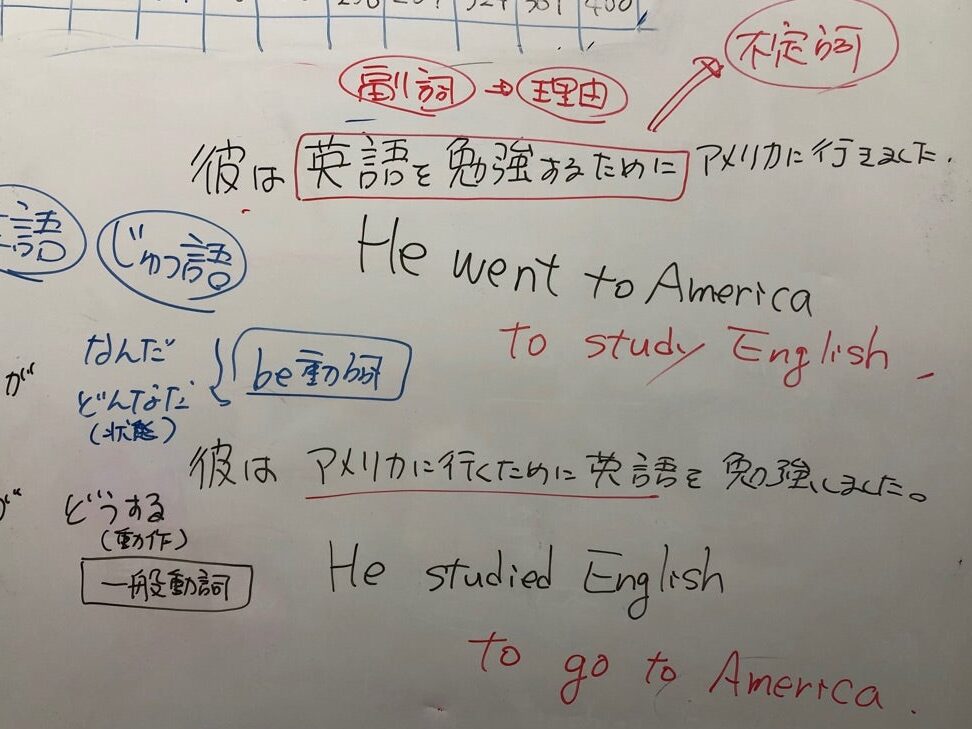 256 289 324 361 400
不定詞
副詞 → 理由
彼は 英語を勉強するために アメリカに行きました.
語 じゅつ語
He went to America
to study English.
なんだ
be動詞
どんなだ
(状態)
が
彼は アメリカに行くために英語を勉強しました。
どうする
(動作)
一般動詞
He studied English
to go to America.